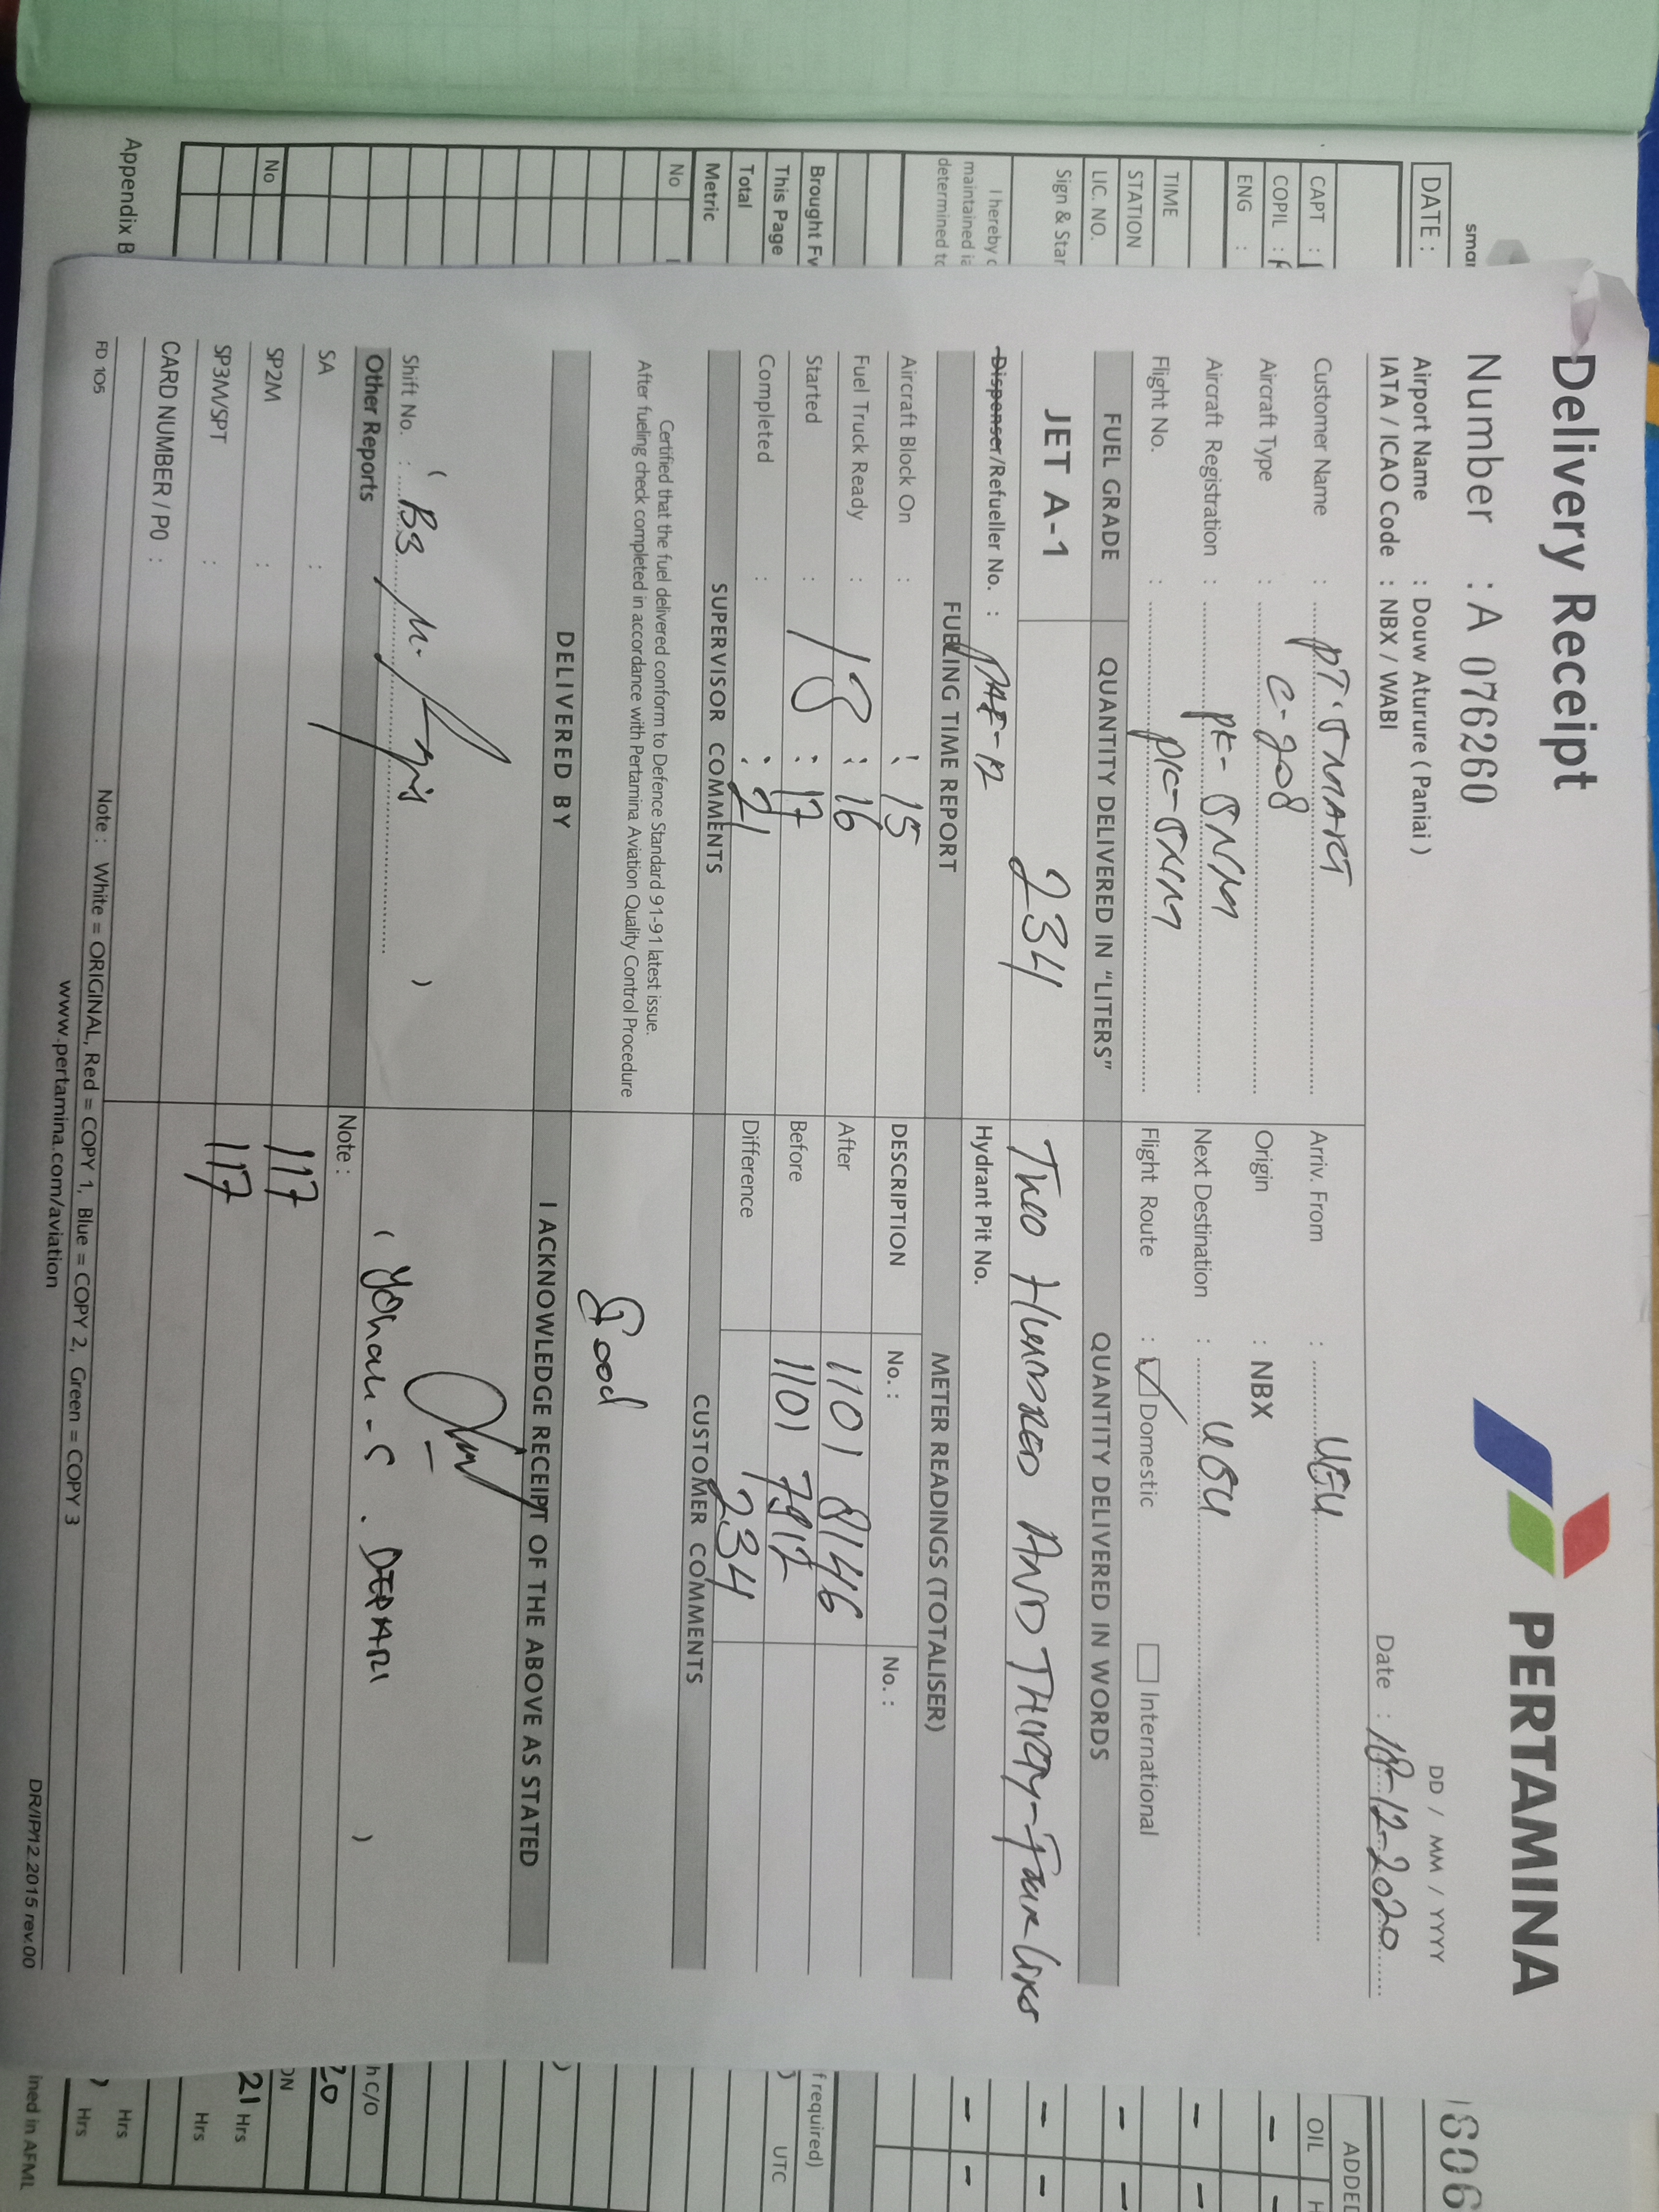 Delivery Receipt
PERTAMINA
Number : A 076260
DD / MM / YYYY
Airport Name : Douw Aturure ( Paniai )
IATA / ICAO Code : NBX / WABI
Date : 18-12-2020
Customer Name : PT. SMART
Arriv. From :
Aircraft Type : C-208
Origin : NBX
Aircraft Registration : PK-SNM
Next Destination :
Flight No. : PK-SNM
Flight Route : Domestic International
FUEL GRADE
QUANTITY DELIVERED IN "LITERS"
QUANTITY DELIVERED IN WORDS
JET A-1
234
Two Hundred AND THIRTY-Four Liter
Dispenser/Refueller No. : DAF-12
Hydrant Pit No.
FUELING TIME REPORT
METER READINGS (TOTALISER)
Aircraft Block On : : 15
DESCRIPTION No. : No. :
Fuel Truck Ready : 18 : 16
After 1101 8146
Started : : 17
Before 1101 7912
Completed : : 21
Difference 234
SUPERVISOR COMMENTS
CUSTOMER COMMENTS
Certified that the fuel delivered conform to Defence Standard 91-91 latest issue.
After fueling check completed in accordance with Pertamina Aviation Quality Control Procedure
Good
DELIVERED BY
I ACKNOWLEDGE RECEIPT OF THE ABOVE AS STATED
Shift No. : ( B3 )
( Yohan - S . )
Other Reports
Note :
SA :
SP2M :
117
SP3M/SPT :
117
CARD NUMBER / PO :
Note : White = ORIGINAL, Red = COPY 1, Blue = COPY 2, Green = COPY 3
FD 105
www.pertamina.com/aviation
DR/IP/12.2015 rev.00
smar
DATE :
CAPT :
COPIL :
ENG :
TIME
STATION
LIC. NO.
Sign & Star
I hereby c
maintained
determined to
Brought Fv
This Page
Total
Metric
No
No
Appendix B
606
ADDED
OIL H
f required)
UTC
h C/O
20
ON
21 Hrs
Hrs
Hrs
Hrs
ined in AFML